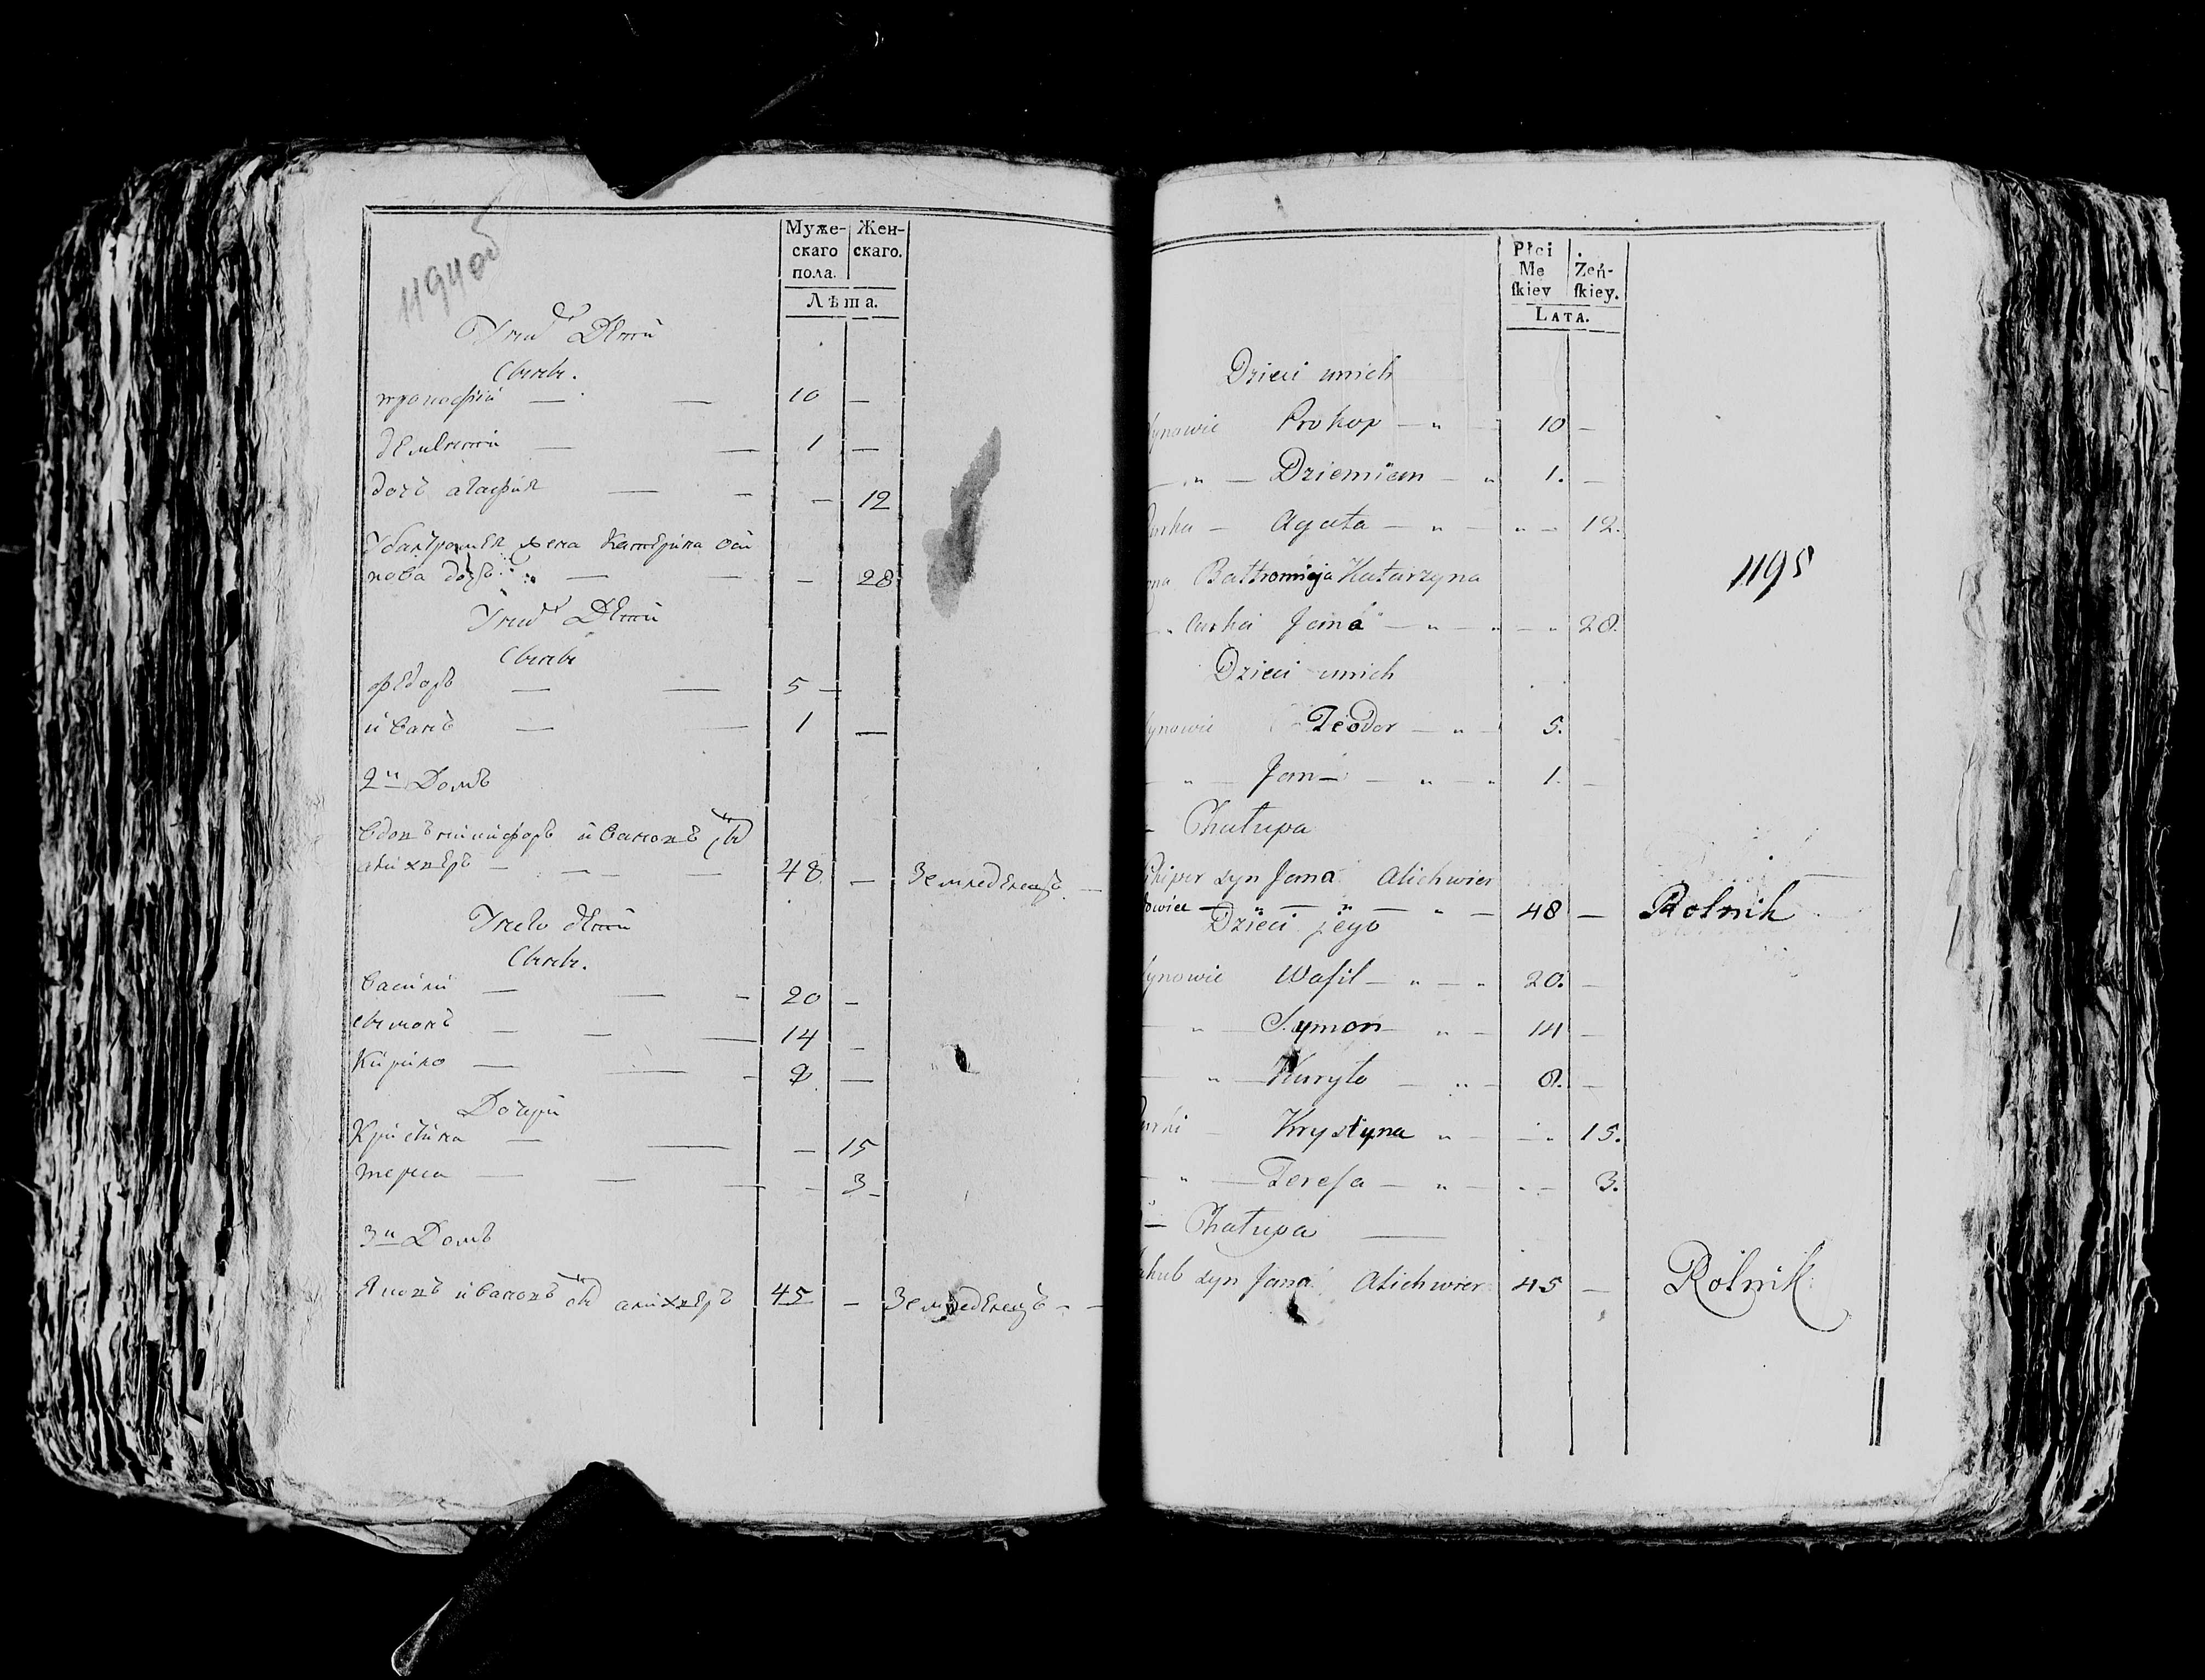 1194 об
Муже-
скаго
пола.
Жен-
скаго.
Лѣта.
У нихъ Дѣти
Сыны.
прокофій — — 10 —
дементій — — 1 —
дочь агафія — — — 12
У балтромея жена Катерина
дочь — — — 28
У нихъ Дѣти
Сыны
федоръ — — 5 —
иванъ — — 1 —
2й Домъ
Вдовъ никифоръ ивановъ сынъ
алихверъ — — — 48. — Земледелецъ —
У него дѣти
Сыны.
Василий — — - 20 —
сымонъ — — — 14 —
Кирило — — - 8 —
Дочери
Кристина — — — 15
тереса — — — - 3 -
3й Домъ
Яковъ ивановъ сынъ алихверъ 45 — Земледелецъ - -
Płci
Me
skiey
Zeń-
skiey.
LATA.
Dzieci unich
ynowie Prokop — „ — 10 —
— „ — Dziemian — „ 1. —
Agata — „ — „ — 12.
Bałtromieja Katarzyna
— „ Curka Jana — „ — „ — „ 28.
Dzieci unich
ynowie Teodor — „ — 5.
— „ — Jan — — „ — „ 1. —
— Chałupa
syn Jana Alichwier
owiec — „ — „ — „ — 48 — Rolnik
Dzieci jego
ynowie Wasil — „ — „ 20. —
— „ — Symon — „ — 14 —
— „ — Kuryło — „ — 8. —
Krystyna „ — — „ 15.
— „ — Teresa — „ — „ — 3.
— Chałupa —
akub syn Jana Alichwier 45 — Rolnik
1195